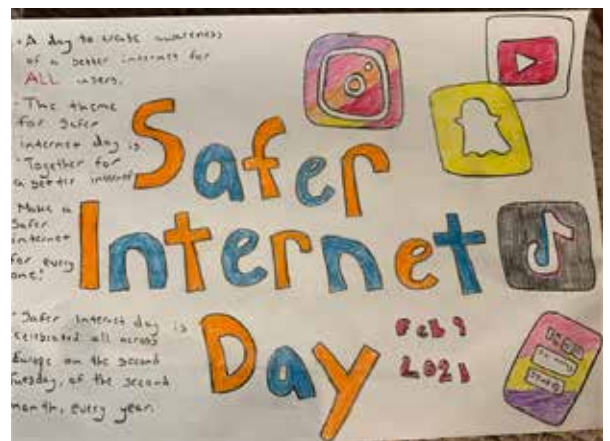 • A day to create awareness
of a better internet for
ALL users.
• The theme
for Safer
internet day is
"Together for
a better internet
Make a
Safer
internet
for every
one!
• Safer internet day is
celebrated all across
Europe on the second
Tuesday, of the second
month, every year.
Safer
Internet
Day
Feb 9
2021